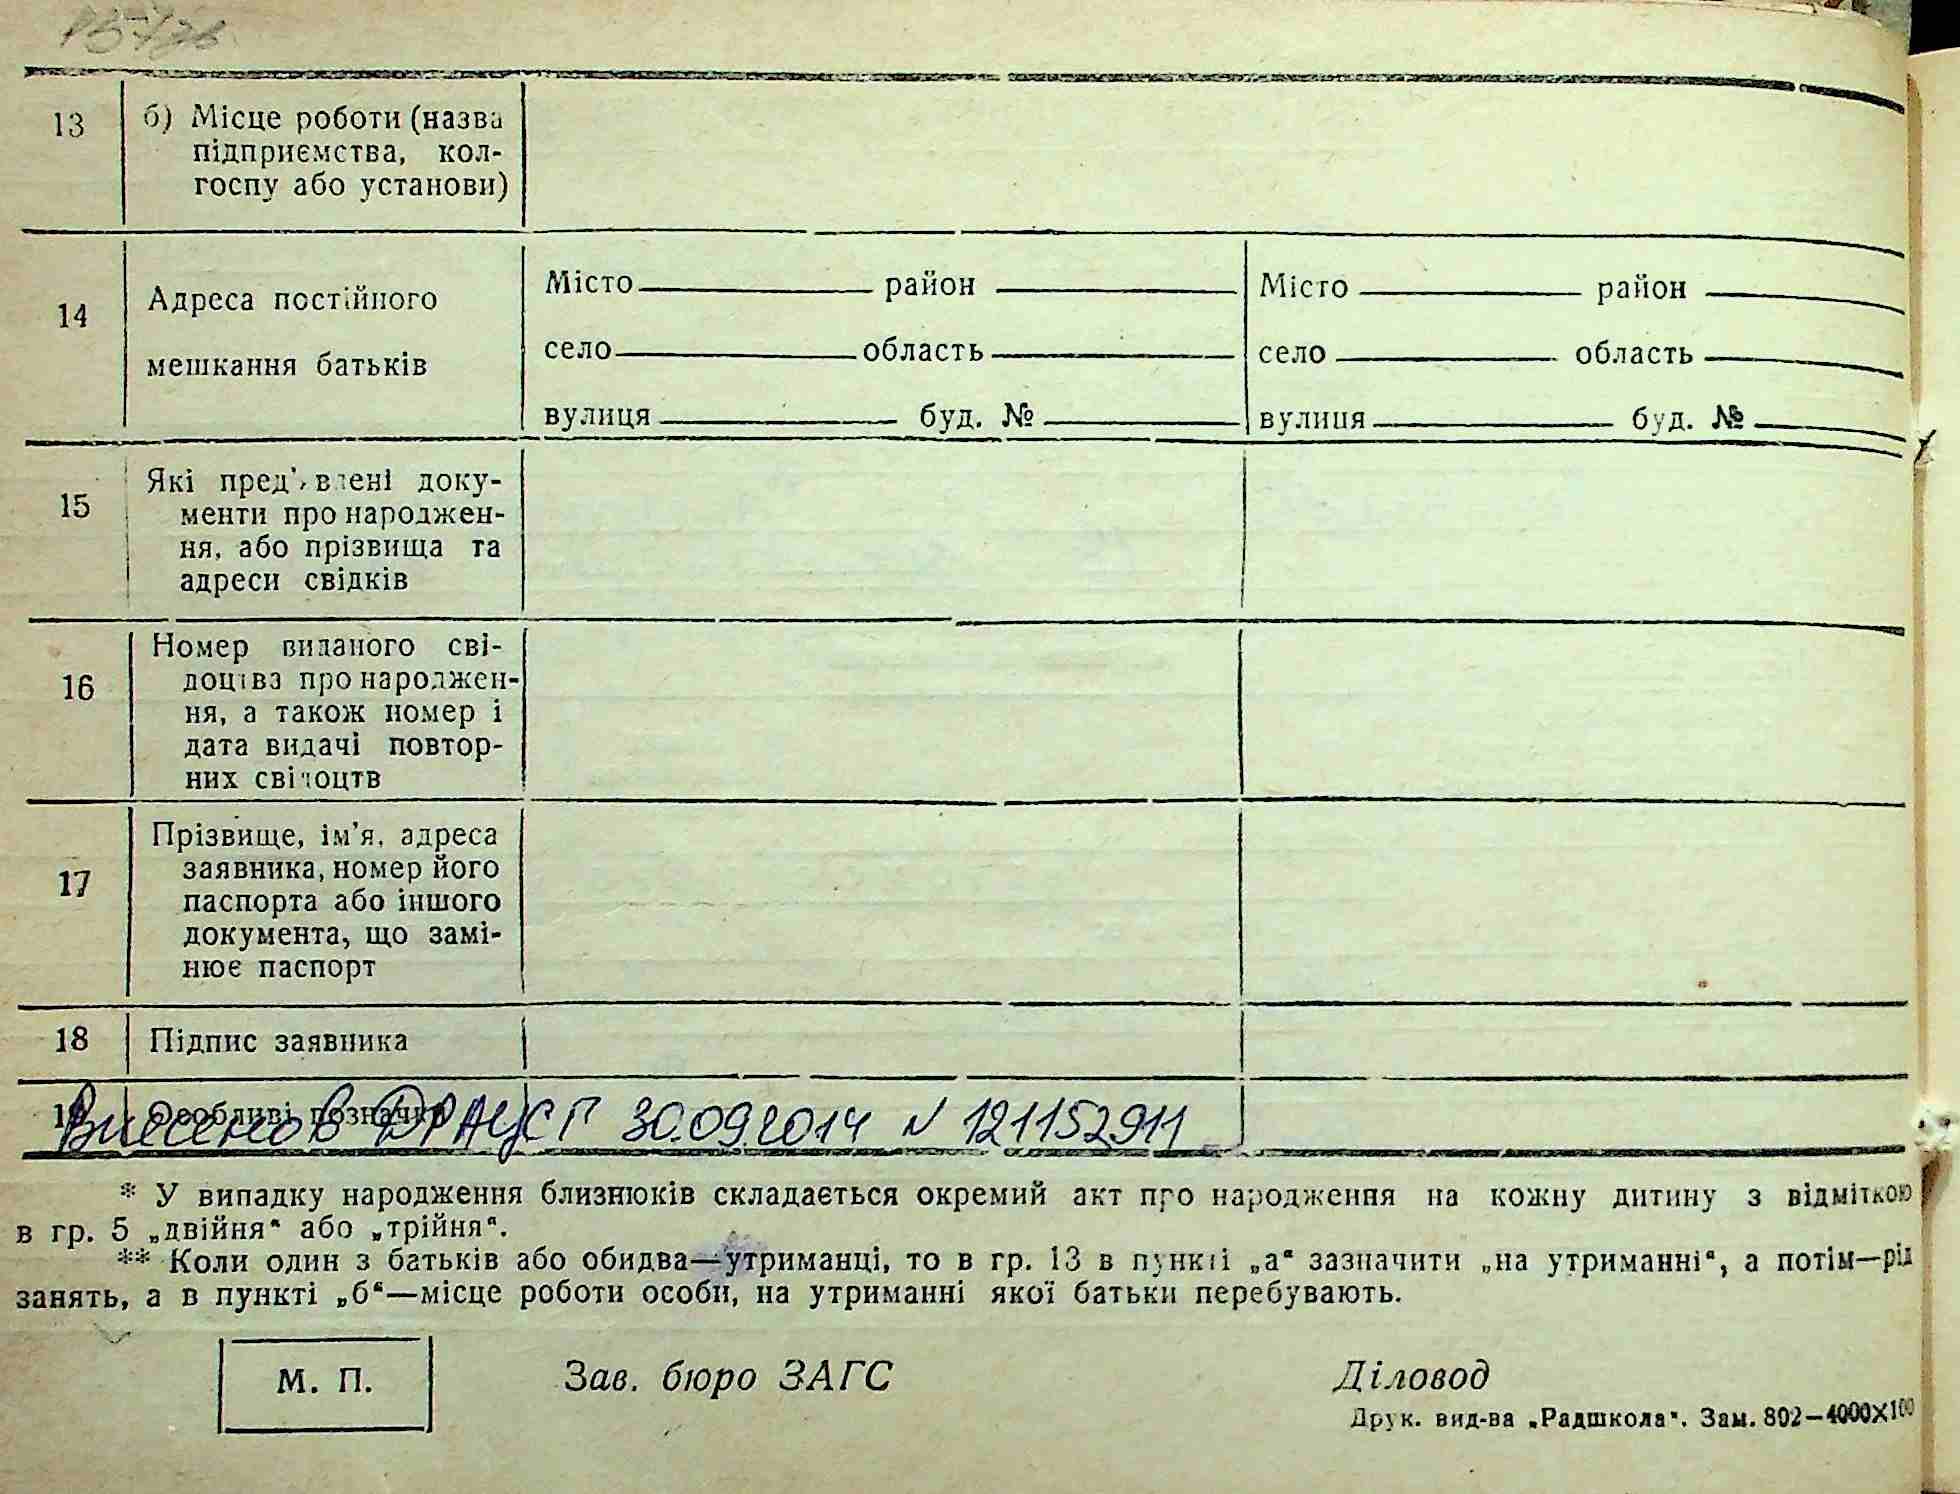 13
б) Місце роботи (назва
підприємства, кол-
госпу або установи)
14
Адреса постійного
мешкання батьків
Місто район
село область
вулиця буд. №
Місто район
село область
вулиця буд. №
15
Які пред'явлені доку-
менти про народжен-
ня, або прізвища та
адреси свідків
16
Номер виданого сві-
доцтва про народжен-
ня, а також номер і
дата видачі повтор-
них свідоцтв
17
Прізвище, ім'я, адреса
заявника, номер його
паспорта або іншого
документа, що замі-
нює паспорт
18
Підпис заявника
19 Особливі позначки
Внесено в ДРАЦСГ 30.09.2014 N 121152911
* У випадку народження близнюків складається окремий акт про народження на кожну дитину з відміткою
в гр. 5 „двійня“ або „трійня“.
** Коли один з батьків або обидва—утриманці, то в гр. 13 в пункті „а“ зазначити „на утриманні“, а потім—рід
занять, а в пункті „б“—місце роботи особи, на утриманні якої батьки перебувають.
М. П.
Зав. бюро ЗАГС
Діловод
Друк. вид-ва „Радшкола“. Зам. 802—4000X100